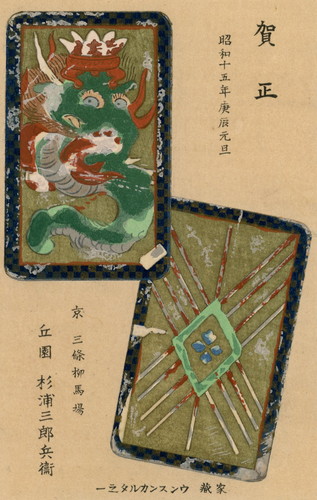 賀正
昭和十五年庚辰元旦
京 三條柳馬場
丘園 杉浦三郎兵衞
家藏 ウンスンカルタ之一